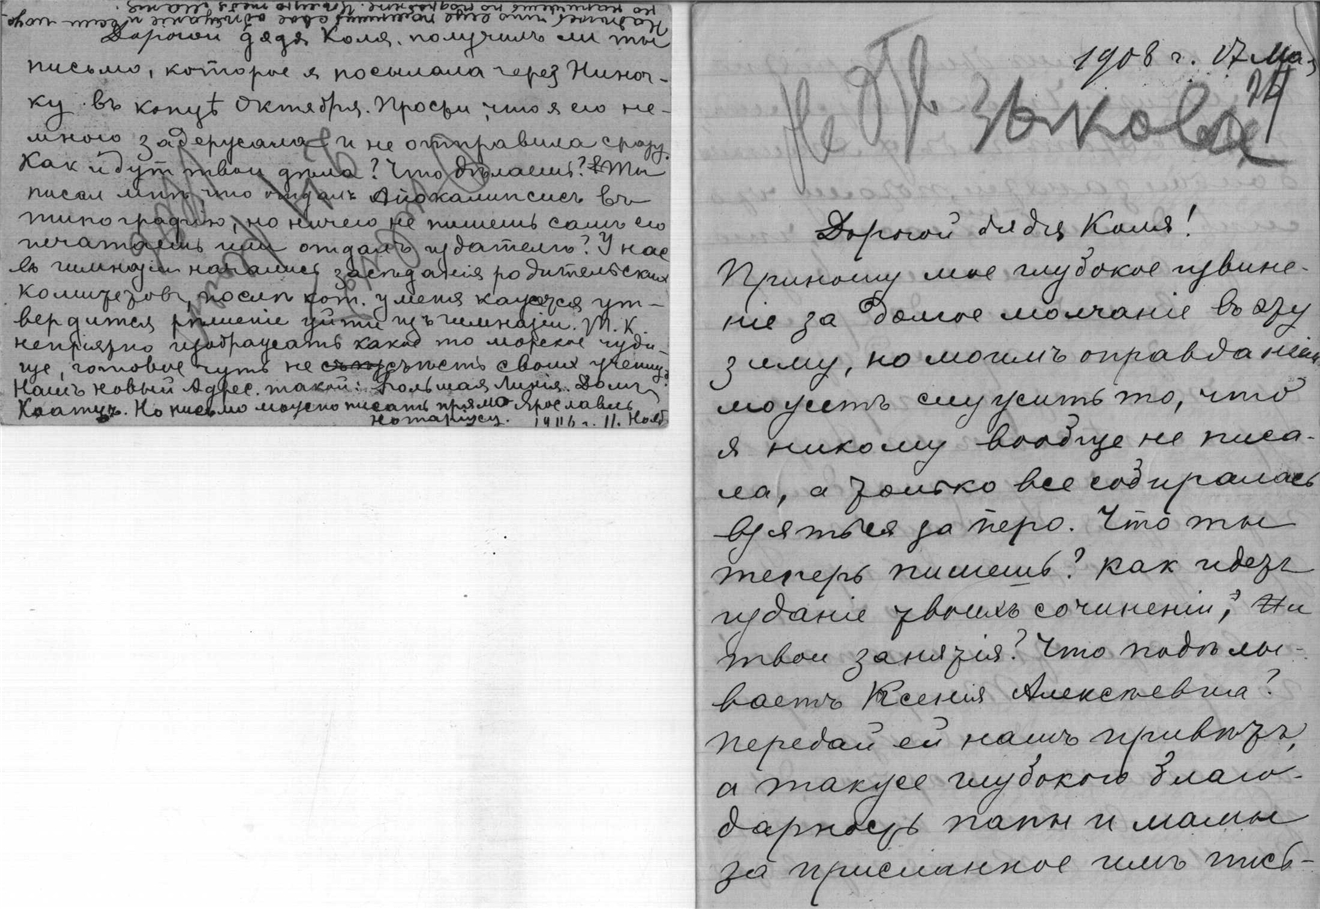 Дорогой дядя Коля. получилъ ли ты
письмо, которое я посылала черезъ Ниноч-
ку въ концѣ Октября. Прости, что я его не-
много задержала и не отправила сразу.
Какъ идутъ твои дѣла? Что дѣлаешь? Ты
писал мнѣ что отдалъ Апокалипсисъ въ
типографію, но ничего не пишешь самъ его
печатаешь или отдалъ издателю? У нас
въ гимназіи начались засѣданія родительских
комитетовъ, послѣ кот. у меня кажется ут-
вердится рѣшеніе уйти изъ гимназіи. Т. К.
непріятно изображать какое то морское чуди-
ще, готовое чуть не съѣсть своих учениц.
Нашъ новый Адрес. такой: Большая Линія. Домъ
Но письмо можно писать прямо Ярославль
Нотаріусу. 1916 г. 11. Нояб
1908 г. 17 Мая
24
Дорогой дядя Коля!
Приношу мое глубокое извине-
ніе за долгое молчаніе въ эту
зиму, но моимъ оправданіем
можетъ служить то, что
я никому вообще не писа-
ла, а только все собиралась
взяться за перо. Что ты
теперь пишешь? как идетъ
изданіе твоихъ сочиненій, и
твои занятія? Что подѣлы-
ваетъ Ксенія Алексѣевна?
Передай ей нашъ привѣтъ,
а также глубокою благо-
дарность папы и мамы
за присланное имъ пись-